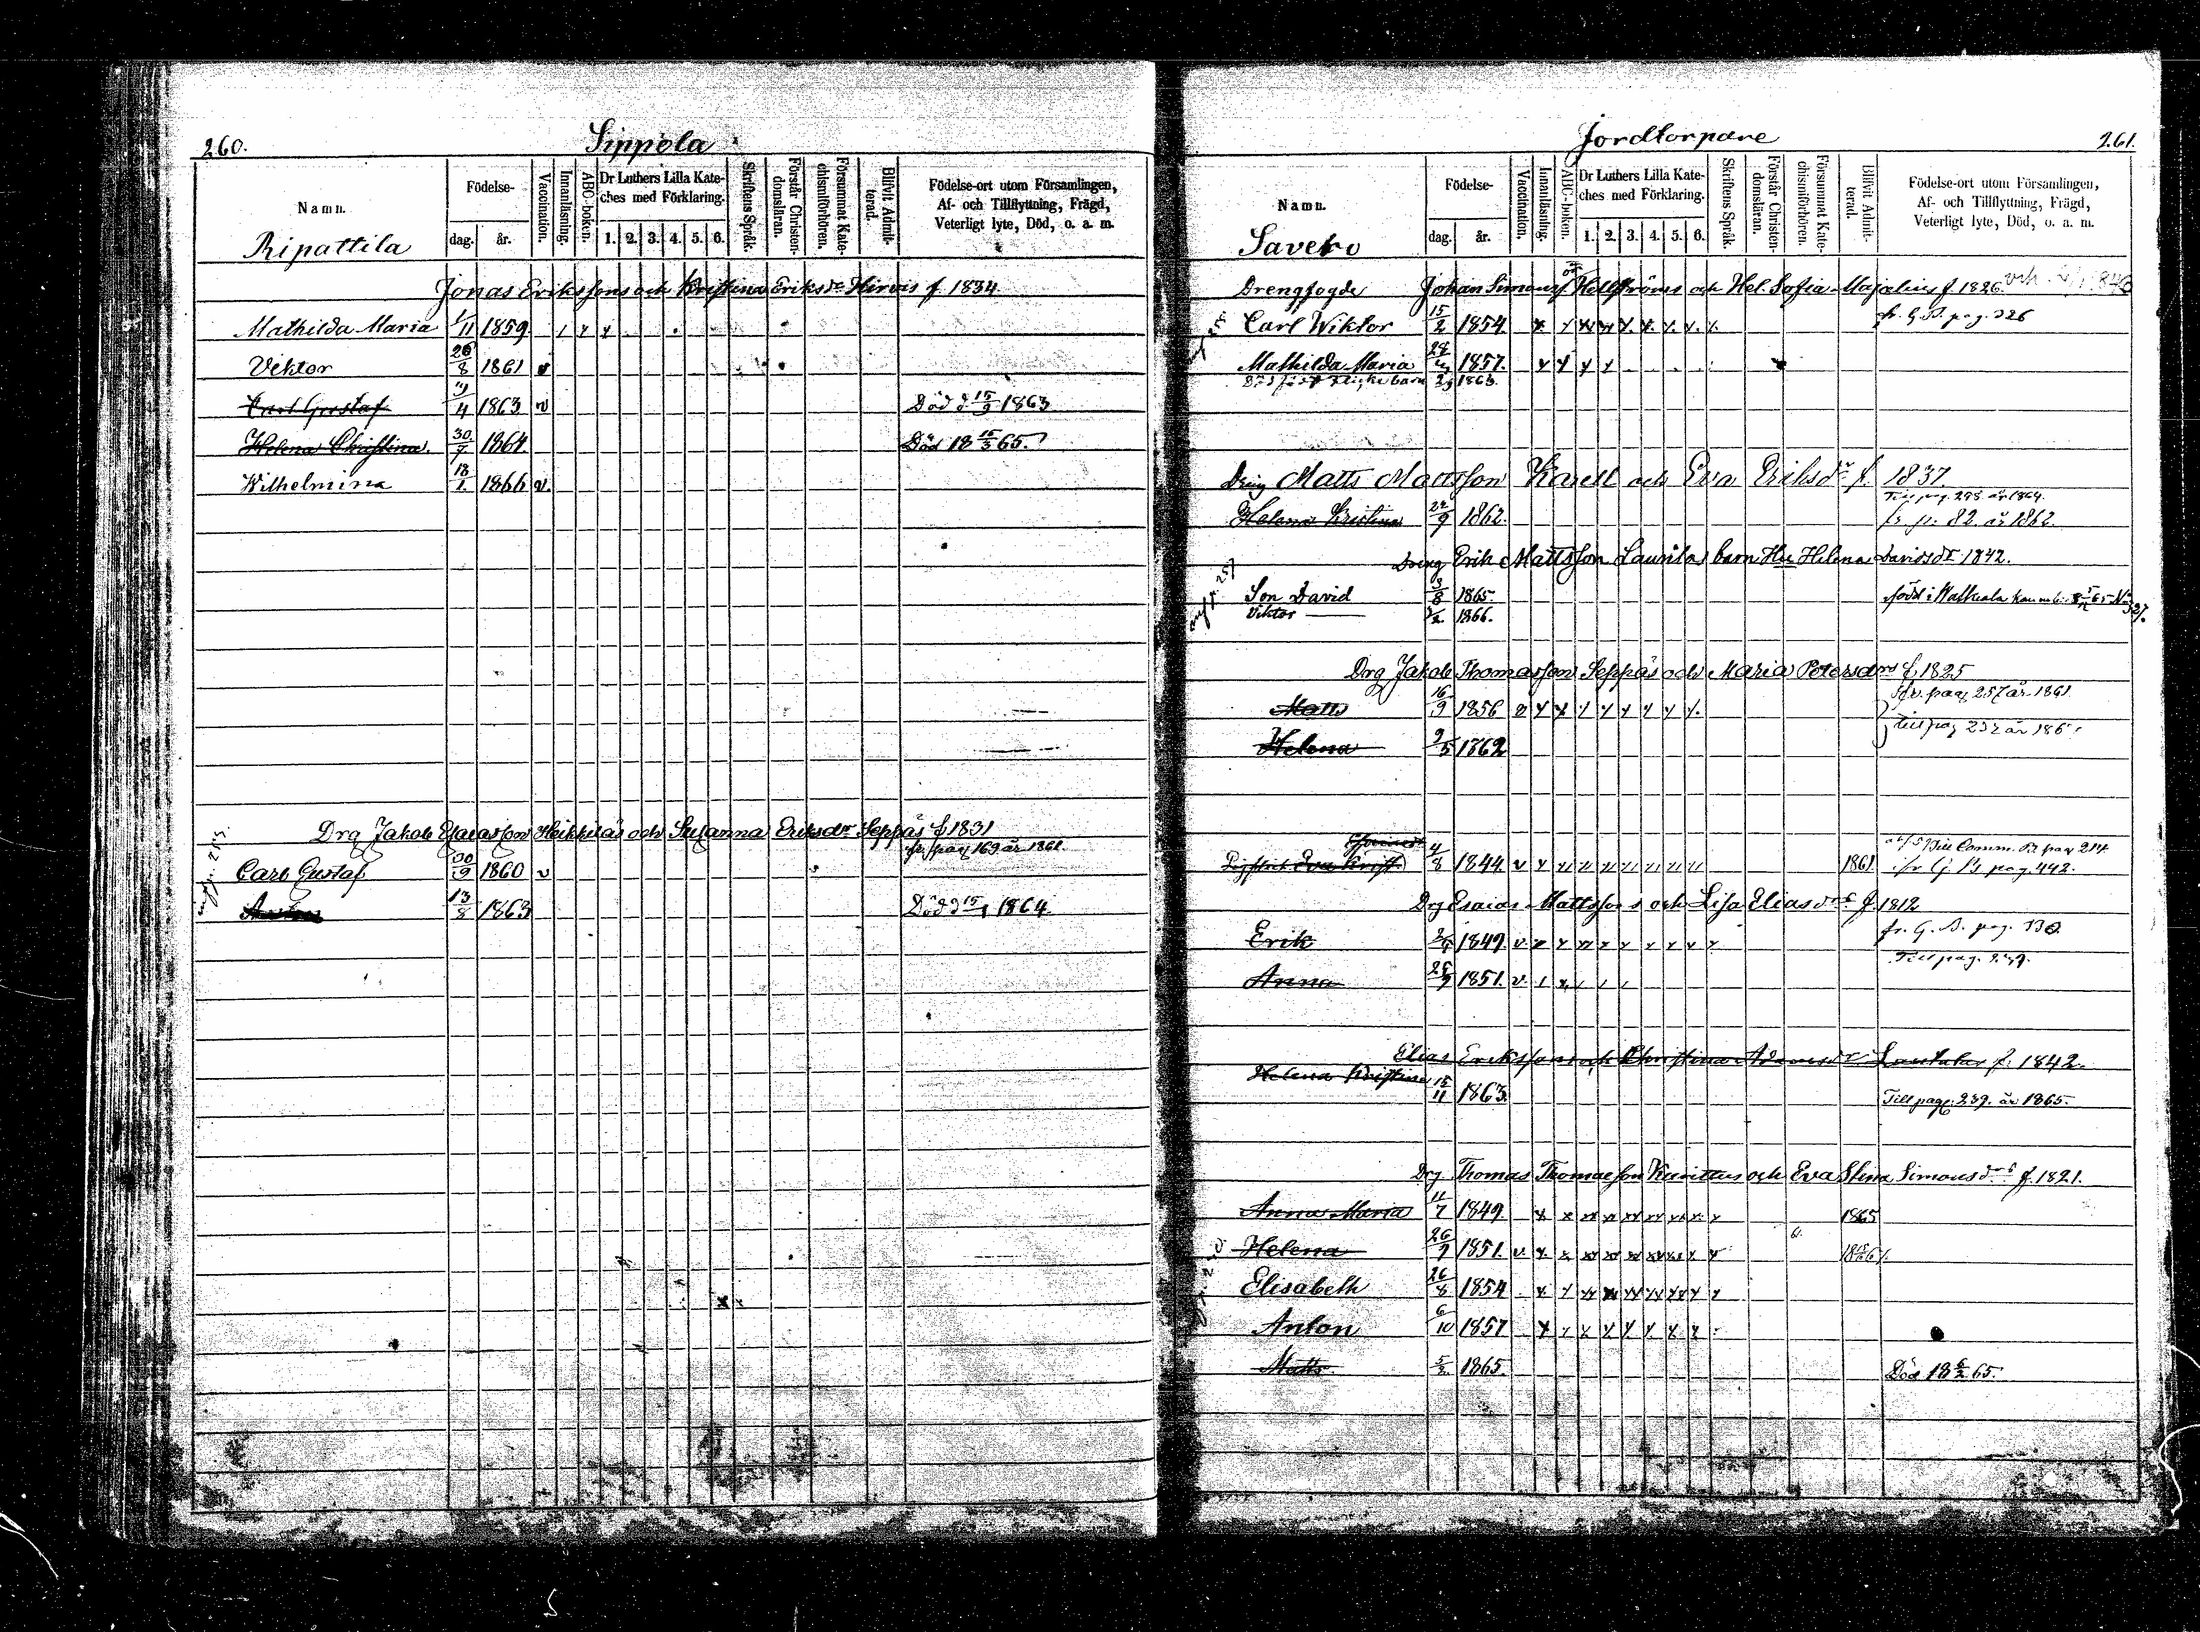 260.
Sippola
Namn.
Födelse-
dag.
år.
Vaccination.
Innanläsning.
ABC-boken.
Dr Luthers Lilla Kate-
ches med Förklaring.
1. 2. 3. 4. 5. 6.
Skriftens Språk.
Förstår Christen-
domsläran.
Försummat Kate-
chismiförhören.
Blifvit Admit-
terad.
Födelse-ort utom Församlingen,
Af- och Tillflyttning, Frägd,
Veterligt lyte, Död, o. a. m.
Ripattila
Jonas Erikssons och Kristina Eriksdr Hirvis f. 1834
Mathilda Maria 1/11 1859
Viktor 26/8 1861 v
Carl Gustaf /4 1863 v Död d. 15/9 1863
Helena Christina. 30/7 1864. Död 18 15/3 65.
Wilhelmina 18/1. 1866 v.
Drg Jakob Esaiasson Heikkiläs och Susanna Eriksdr Seppäs f. 1831
fr. pag 169 år 1861.
Carl Gustaf 30/9 1860 v
Anton 13/8 1863 Död d 15/1 1864
Jordtorpare
261.
Namn.
Födelse-
dag.
år.
Vaccination.
Innanläsning.
ABC-boken.
Dr Luthers Lilla Kate-
ches med Förklaring.
1. 2. 3. 4. 5. 6.
Skriftens Språk.
Förstår Christen-
domsläran.
Försummat Kate-
chismiförhören.
Blifvit Admit-
terad.
Födelse-ort utom Församlingen,
Af- och Tillflyttning, Frägd,
Veterligt lyte, Död, o. a. m.
Savero
Drengfogde Johan Simonss Hellströms och Hel. Sofia Majalius f. 1826.
Carl Wiktor 15/2 1854 fr. G. B. pag. 326
Mathilda Maria 28/ 1857.
1863.
Dreng Matts Mattsson Karell och Eva Eriksdr f. 1837.
Till pag. 298 år 1864.
Helena Kristina 22/9 1862. fr. p. 82. år 1862.
Dreng Erik Mattsson Laurilas barn Hu Helena Davidsdr 1842.
Son David 3/8 1865. född i Walkeala
Viktor 1866.
Drg Jakob Thomasson Seppäs och Maria Petersdrs f. 1825
fr. pag 257 år 1861
Matts 16/9 1856
till pag 232 år
Helena 9/5 1862
Eva Krist. 4/8 1844. v 1861 till Comm. B. pag 214
fr G. B. pag. 442.
Drg Esaias Mattssons och Lisa Eliasdrs f. 1812
Erik 1849. v fr. G. B. pag. 330
Anna 25/9 1851. v. Till pag. 239.
Elias Erikssons och Christina Adamsdr Lautalas f. 1842.
Helena Kristina 15/11 1863. Till pag. 239. år 1865.
Drg Thomas Thomasson Kurittus och Eva Stina Simonsdrs f. 1821.
Anna Maria 11/7 1849. 1865
Helena 26/9 1851. v
Elisabeth 26/8 1854
Anton 6/10 1857
Matts 5/2. 1865. Död 18 6/2 65.